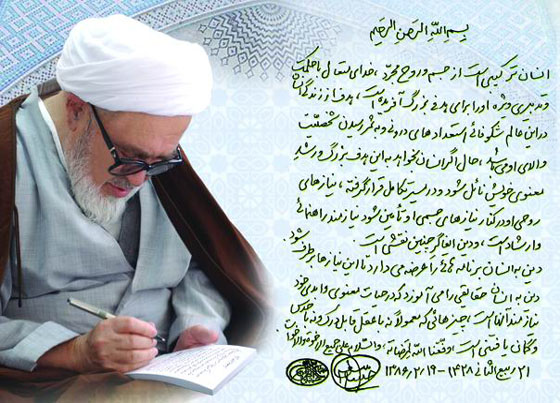 بسم الله الرحمن الرحیم
انسان ترکیبی است از جسم و روح مجرد، خدای متعال با حکمت
و تدبیری ویژه او را برای هدفی بزرگ آفریده است، هدف از زندگی انسان
در این عالم شکوفائی استعدادهای درونی و به ثمر رسیدن شخصیت
والای او می‌باشد، حال اگر انسان بخواهد به این هدف بزرگ و رشد
معنوی خویش نائل شود و در مسیر تکامل قرار گرفته، نیازهای
روحی او در کنار نیازهای جسمی او تأمین شود نیازمند راهنمائی
و ارشاد است، و دین ایفاگر چنین نقشی است.
دین به انسان برنامه هائی را عرضه می دارد تا این نیازها برطرف شود.
دین به انسان حقائقی را می آموزد که در حیات معنوی و ابدی خود
نیازمند آنها است، چیزهائی که معمولاً نه با عقل قابل درک و نه با حواس
همگان یافتنی است وفقنا الله لمرضاته، والسلام علی جمیع
۲۱ ربیع الثانی ۱۴۲۸ - ۱۳۸۶/۲/۱۹